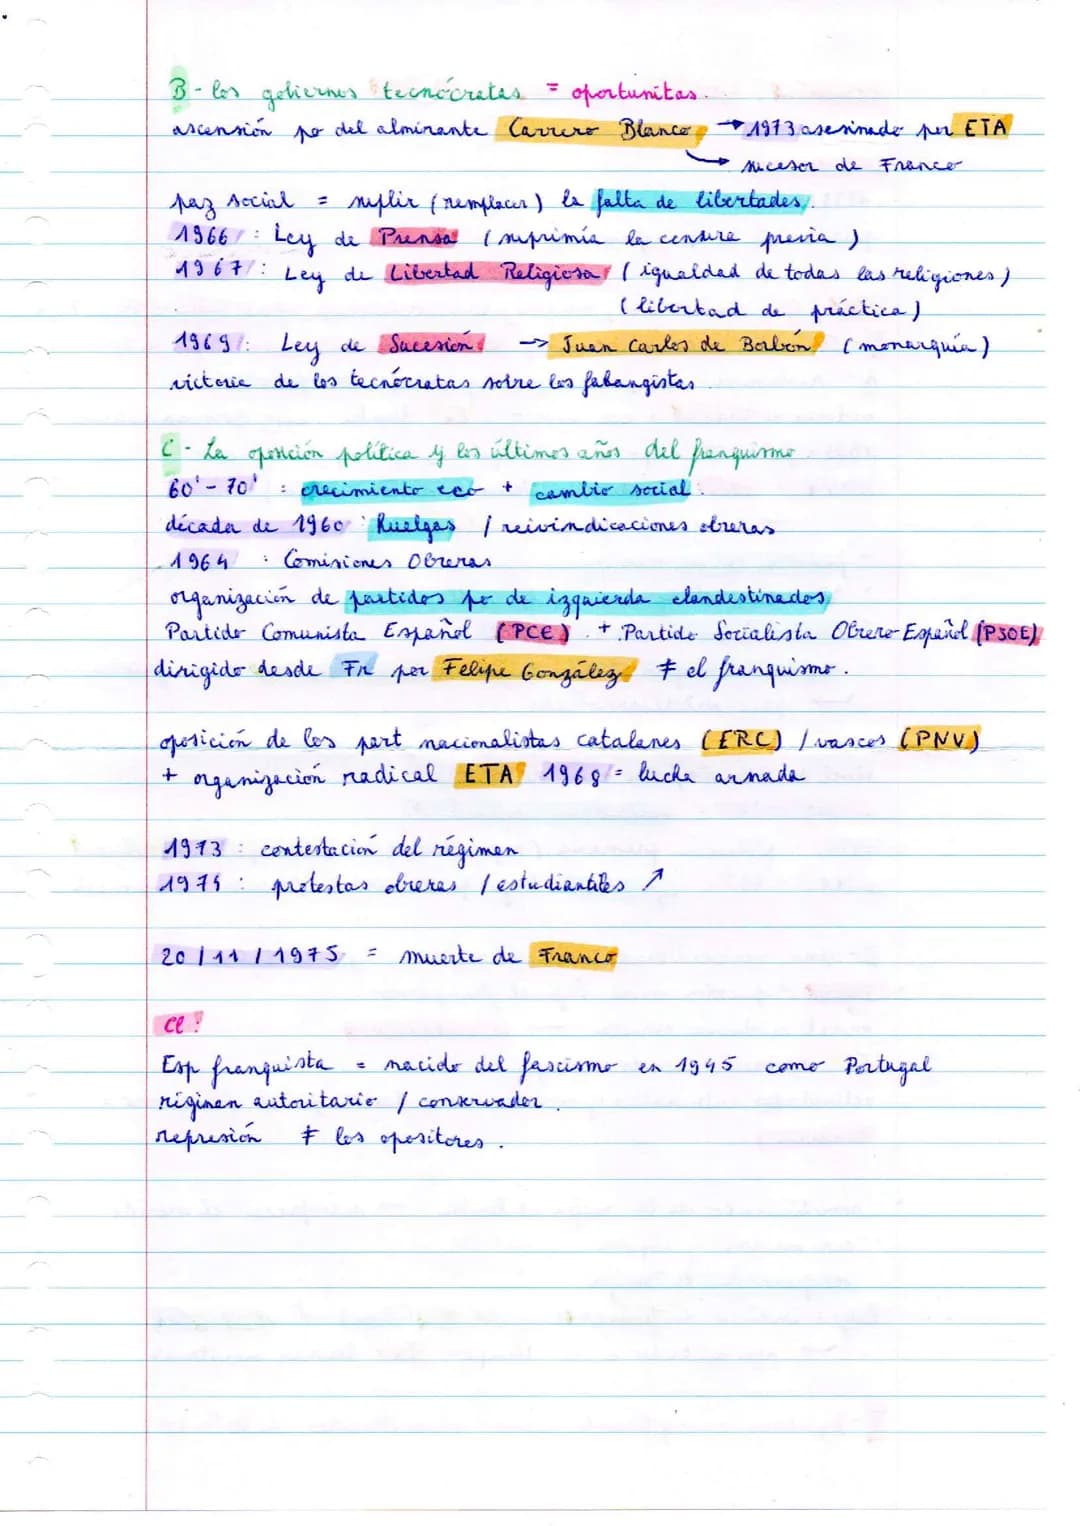 B - los gobiernos tecnócratas = oportunitas.
ascensión po del almirante Carrero Blanco → 1973 asesinado por ETA
→ sucesor de Franco
paz social = suplir (remplacer) la falta de libertades.
1966 : Ley de Prensa (suprimía la censura previa)
1967 : Ley de Libertad Religiosa (igualdad de todas las religiones)
(libertad de práctica)
1969 : Ley de Sucesión → Juan Carlos de Borbón (monarquía)
victoria de los tecnócratas sobre los falangistas.
C - La oposición política y los últimos años del franquismo.
60' - 70' : crecimiento eco + cambio social.
década de 1960 : Huelgas / reivindicaciones obreras
1964 : Comisiones Obreras
organización de partidos po de izquierda clandestinados
Partido Comunista Español (PCE) + Partido Socialista Obrero Español (PSOE)
dirigido desde Fr por Felipe González ≠ el franquismo.
oposición de los part nacionalistas catalanes (ERC) / vascos (PNV)
+ organización radical ETA 1968 = lucha armada
1973 : contestación del régimen
1974 : protestas obreras / estudiantiles ↗
20 / 11 / 1975 = muerte de Franco
Cl :
Esp franquista = nacido del fascismo en 1945 como Portugal
régimen autoritario / conservador.
represión ≠ los opositores.